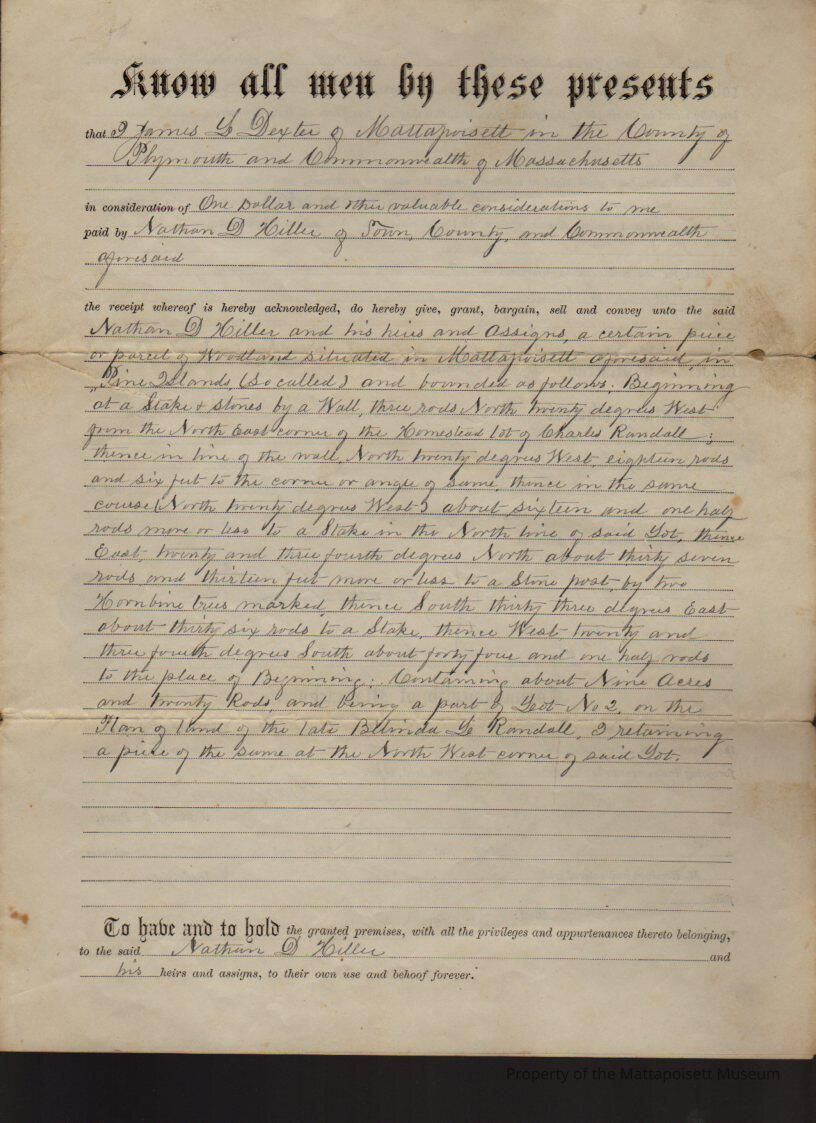 Know all men by these presents
that I James L Dexter of Mattapoisett in the County of
Plymouth and Commonwealth of Massachusetts
in consideration of One Dollar and other valuable considerations to me
paid by Nathan D Hiller of Town, County, and Commonwealth
aforesaid
the receipt whereof is hereby acknowledged, do hereby give, grant, bargain, sell and convey unto the said
Nathan D Hiller and his heirs and Assigns, a certain piece
or parcel of Woodland situated in Mattapoisett aforesaid, in
Pine Islands (so called) and bounded as follows: Beginning
at a Stake & stones by a Wall, three rods North twenty degrees West
from the North East corner of the Homestead lot of Charles Randall;
thence in line of the wall, North twenty degrees West, eighteen rods
and six feet to the corner or angle of same, thence in the same
course (North twenty degrees West) about sixteen and one half
rods more or less to a Stake in the North line of said Lot, thence
East, twenty and three fourth degrees North about thirty seven
rods and thirteen feet more or less to a Stone post, by two
Hornbine trees marked, thence South thirty three degrees East
about thirty six rods to a Stake, thence West, twenty and
three fourth degrees South about forty four and one half rods
to the place of Beginning: Containing about Nine Acres
and twenty Rods, and being a part of Lot No 2. on the
Plan of land of the late Belinda L Randall, I retaining
a piece of the same at the North West corner of said Lot.
To have and to hold the granted premises, with all the privileges and appurtenances thereto belonging,
to the said Nathan D Hiller and
his heirs and assigns, to their own use and behoof forever.
Property of the Mattapoisett Museum